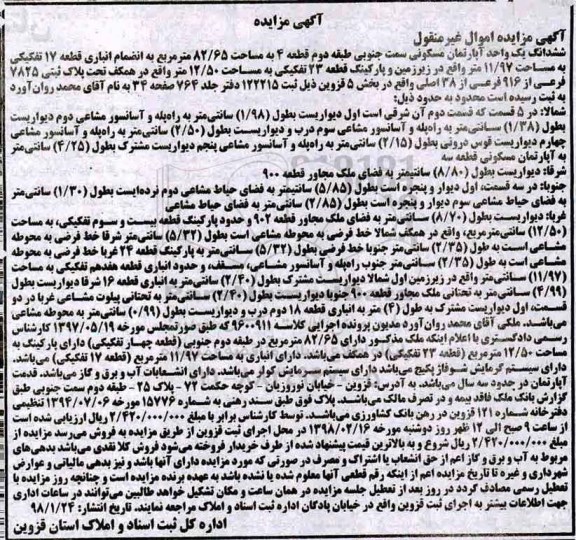 آگهی مزایده
آگهی مزایده اموال غیرمنقول
ششدانگ یک واحد آپارتمان مسکونی سمت جنوبی طبقه دوم قطعه ۴ به مساحت ۸۲/۶۵ مترمربع به انضمام انباری قطعه ۱۷ تفکیکی
به مساحت ۱۱/۹۷ متر واقع در زیرزمین و پارکینگ قطعه ۲۳ تفکیکی به مساحت ۱۲/۵۰ متر واقع در همکف تحت پلاک ثبتی ۷۸۲۵
فرعی از ۹۱۶ فرعی از ۳۸ اصلی واقع در بخش ۵ قزوین ذیل ثبت ۱۲۲۲۱۵ دفتر جلد ۷۶۴ صفحه ۳۴ به نام آقای محمد روان‌آورد
به ثبت رسیده است محدود به حدود ذیل:
شمالا: در ۵ قسمت که قسمت دوم آن شرقی است اول دیواریست بطول (۱/۹۸) سانتی‌متر به راه‌پله و آسانسور مشاعی دوم دیواریست
بطول (۱/۳۸) سانتی‌متر به راه‌پله و آسانسور مشاعی سوم درب و دیواریست بطول (۲/۵۰) سانتی‌متر به راه‌پله و آسانسور مشاعی
چهارم دیواریست قوس درونی بطول (۲/۱۵) سانتی‌متر به راه‌پله و آسانسور مشاعی پنجم دیواریست مشترک بطول (۴/۲۵) سانتی‌متر
به آپارتمان مسکونی قطعه سه
شرقا: دیواریست بطول (۸/۸۰) سانتیمتر به فضای ملک مجاور قطعه ۹۰۰
جنوبا: در سه قسمت، اول دیوار و پنجره است بطول (۵/۸۵) سانتیمتر به فضای حیاط مشاعی دوم نرده‌ایست بطول (۱/۳۰) سانتی‌متر
به فضای حیاط مشاعی سوم دیوار و پنجره است بطول (۲/۸۵) سانتی‌متر به فضای حیاط مشاعی
غربا: دیواریست بطول (۸/۷۰) سانتی‌متر به فضای ملک مجاور قطعه ۹۰۲ و حدود پارکینگ قطعه بیست و سوم تفکیکی، به مساحت
(۱۲/۵۰) سانتی‌مترمربع، واقع در همکف شمالا خط فرضی به محوطه مشاعی است بطول (۵/۳۲) سانتی‌متر شرقا خط فرضی به محوطه
مشاعی است به طول (۲/۳۵) سانتی‌متر جنوبا خط فرضی بطول (۵/۳۲) سانتی‌متر به پارکینگ قطعه ۲۴ غربا خط فرضی به محوطه
مشاعی است به طول (۲/۳۵) سانتی‌متر جنوب راه‌پله و آسانسور مشاعی، مسقف، و حدود انباری قطعه هفدهم تفکیکی به مساحت
(۱۱/۹۷) سانتی‌متر واقع در زیرزمین اول شمالا دیواریست مشترک بطول (۲/۴۰) سانتی‌متر به انباری قطعه ۱۶ شرقا دیواریست بطول
(۴/۹۹) سانتی‌متر به تحتانی ملک مجاور قطعه ۹۰۰ جنوبا دیواریست بطول (۲/۴۰) سانتی‌متر به تحتانی پیلوت مشاعی غربا در دو
قسمت، اول دیواریست مشترک به طول (۴) متر به انباری قطعه ۱۸ دوم درب و دیواریست بطول (۰/۹۹) سانتی‌متر به محوطه مشاعی
می‌باشد. ملکی آقای محمد روان‌آورد مدیون پرونده اجرایی کلاسه ۹۶۰۰۹۱۱ که طبق صورتمجلس مورخه ۱۳۹۷/۰۵/۱۹ کارشناس
رسمی دادگستری با اعلام اینکه ملک مذکور دارای ۸۲/۶۵ مترمربع در طبقه دوم جنوبی (قطعه چهار تفکیکی) دارای پارکینگ به
مساحت ۱۲/۵۰ مترمربع (قطعه ۲۳ تفکیکی) در همکف می‌باشد. دارای انباری به مساحت ۱۱/۹۷ مترمربع (قطعه ۱۷ تفکیکی) می‌باشد.
دارای سیستم گرمایش شوفاژ پکیج می‌باشد دارای سیستم سرمایش کولر می‌باشد. دارای انشعابات آب و برق و گاز می‌باشد. قدمت
آپارتمان در حدود سه سال می‌باشد. به آدرس: قزوین - خیابان نوروزیان - کوچه حکمت ۷۲ - پلاک ۲۵ - طبقه دوم سمت جنوبی طبق
گزارش بانک ملک فاقد بیمه و در تصرف مالک می‌باشد. پلاک فوق طبق سند رهنی به شماره ۱۵۷۷۶ مورخه ۱۳۹۴/۰۷/۰۶ تنظیمی
دفترخانه شماره ۱۲۱ قزوین در رهن بانک کشاورزی می‌باشد. توسط کارشناس برابر با مبلغ ۲/۴۲۰/۰۰۰/۰۰۰ ریال ارزیابی شده است
از ساعت ۹ صبح الی ۱۲ ظهر روز دوشنبه مورخه ۱۳۹۸/۰۲/۱۶ در محل اجرای ثبت قزوین از طریق مزایده به فروش می‌رسد مزایده از
مبلغ ۲/۴۲۰/۰۰۰/۰۰۰ ریال شروع و به بالاترین قیمت پیشنهاد شده از طرف خریدار فروخته می‌شود فروش کلا نقدی می‌باشد بدهی‌های
مربوط به آب و برق و گاز اعم از حق انشعاب یا اشتراک و مصرف در صورتی که مورد مزایده دارای آنها باشد و نیز بدهی مالیاتی و عوارض
شهرداری و غیره تا تاریخ مزایده اعم از اینکه رقم قطعی آنها معلوم شده یا نشده باشد به عهده برنده مزایده است و چنانچه روز مزایده با
تعطیل رسمی مصادف گردد در روز بعد از تعطیل جلسه مزایده در همان ساعت و مکان تشکیل خواهد طالبین می‌توانند در ساعات اداری
جهت اطلاعات بیشتر به اجرای ثبت قزوین واقع در خیابان پادگان اداره ثبت اسناد و املاک مراجعه نمایند. تاریخ انتشار: ۹۸/۱/۲۴
اداره کل ثبت اسناد و املاک استان قزوین